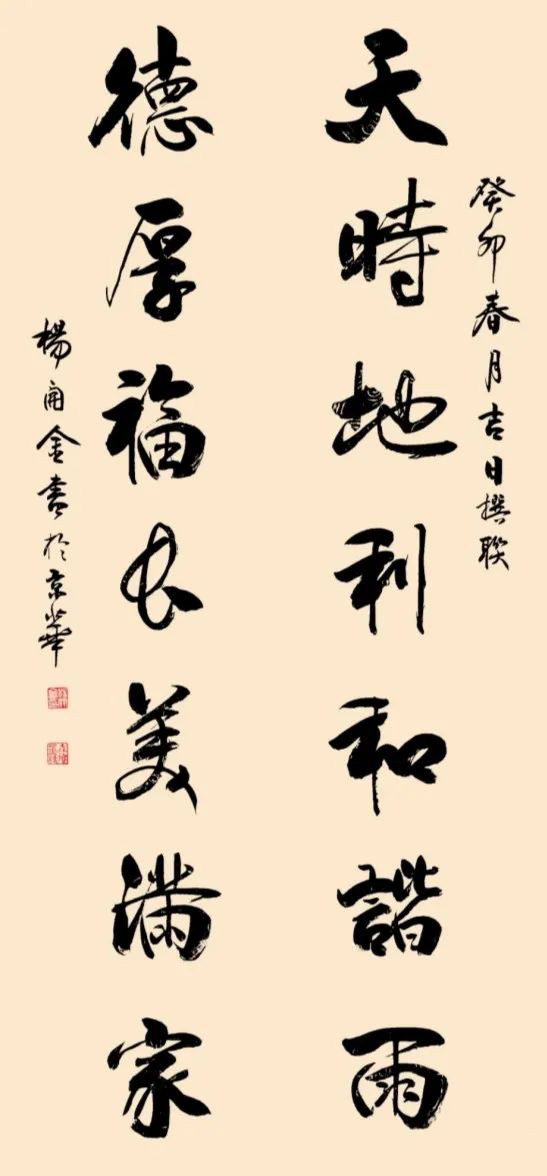 癸卯春月吉日撰聯
天時地利和諧雨
德厚福长美滿家
楊開金書於京華